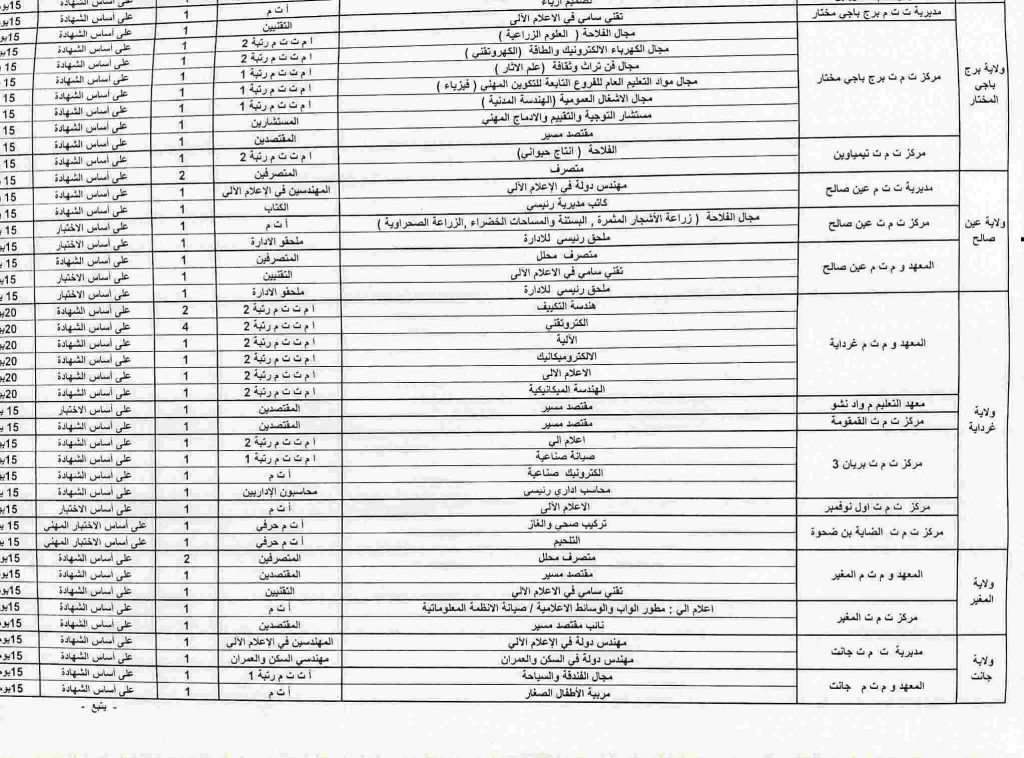 تصميم ازياء 1 على أساس الشهادة
مديرية ت ت م برج باجي مختار تقني سامي في الاعلام الآلي التقنيين 1 على أساس الشهادة
ولاية برج باجي المختار مركز ت م ت برج باجي مختار مجال الفلاحة ( العلوم الزراعية ) ا م ت ت م رتبة 2 1 على أساس الشهادة
مجال الكهرباء الالكترونيك والطاقة (الكهروتقني ) ا م ت ت م رتبة 2 1 على أساس الشهادة
مجال فن تراث وثقافة (علم الاثار ) ا م ت ت م رتبة 1 1 على أساس الشهادة
مجال مواد التعليم العام للفروع التابعة للتكوين المهني ( فيزياء ) ا م ت ت م رتبة 1 1 على أساس الشهادة
مجال الاشغال العمومية (الهندسة المدنية ) ا م ت ت م رتبة 1 1 على أساس الشهادة
مستشار التوجية والتقييم والادماج المهني المستشارين 1 على أساس الشهادة
مقتصد مسير المقتصدين 1 على أساس الشهادة 15
مركز ت م ت تيمياوين الفلاحة ( انتاج حيواني) ا م ت ت م رتبة 2 1 على أساس الشهادة 15
ولاية عين صالح مديرية ت ت م عين صالح متصرف المتصرفين 2 على أساس الشهادة
مهندس دولة في الإعلام الآلي المهندسين في الإعلام الآلي 1 على أساس الشهادة
كاتب مديرية رئيسي الكتاب 1 على أساس الشهادة
مركز ت م ت عين صالح مجال الفلاحة ( زراعة الأشجار المثمرة , البستنة والمساحات الخضراء ,الزراعة الصحراوية ) أ ت م 1 على أساس الشهادة
ملحق رئيسي للادارة ملحقو الادارة 1 على أساس الاختبار
المعهد و م ت م عين صالح متصرف محلل المتصرفين 1 على أساس الشهادة
تقني سامي في الاعلام الآلي التقنيين 1 على أساس الشهادة
ملحق رئيسي للادارة ملحقو الادارة 1 على أساس الاختبار
ولاية غرداية المعهد و م ت م غرداية هندسة التكييف ا م ت ت م رتبة 2 2 على أساس الشهادة 20
الكتروتقني ا م ت ت م رتبة 2 4 على أساس الشهادة 20
الآلية ا م ت ت م رتبة 2 1 على أساس الشهادة 20
الالكتروميكانيك ا م ت ت م رتبة 2 1 على أساس الشهادة 20
الاعلام الالي ا م ت ت م رتبة 2 1 على أساس الشهادة 20
الهندسة الميكانيكية ا م ت ت م رتبة 2 1 على أساس الشهادة 20
معهد التعليم م واد نشو مقتصد مسير المقتصدين 1 على أساس الاختبار 15
مركز ت م ت القمقومة مقتصد مسير المقتصدين 1 على أساس الشهادة 15
مركز ت م ت بريان 3 اعلام الي ا م ت ت م رتبة 2 1 على أساس الشهادة 15
صيانة صناعية ا م ت ت م رتبة 1 1 على أساس الشهادة 15
الكترونيك صناعية أ ت م 1 على أساس الشهادة 15
محاسب اداري رئيسي محاسبون الإداريين 1 على أساس الشهادة 15
مركز ت م ت اول نوفمبر الاعلام الالي أ ت م 1 على أساس الاختبار 15
مركز ت م ت الضاية بن ضحوة تركيب صحي والغاز أ ت م حرفي 1 على أساس الاختبار المهني 15
التلحيم أ ت م حرفي 1 على أساس الاختبار المهني 15
ولاية المغير المعهد و م ت م المغير متصرف محلل المتصرفين 2 على أساس الشهادة 15
مقتصد مسير المقتصدين 1 على أساس الشهادة 15
تقني سامي في الاعلام الالي التقنيين 1 على أساس الشهادة 15
مركز ت م ت المغير اعلام الي : مطور الواب والوسائط الاعلامية / صيانة الانظمة المعلوماتية أ ت م 1 على أساس الشهادة 15
نائب مقتصد مسير المقتصدين 1 على أساس الشهادة 15
ولاية جانت مديرية ت م ت جانت مهندس دولة في الإعلام الآلي المهندسين في الإعلام الآلي 1 على أساس الشهادة 15
مهندس دولة في السكن والعمران مهندسي السكن والعمران 1 على أساس الشهادة 15
المعهد و م ت م جانت مجال الفندقة والسياحة أ ت ت م رتبة 1 1 على أساس الشهادة 15
مربية الأطفال الصغار أ ت م 1 على أساس الشهادة 15
- يتبع -